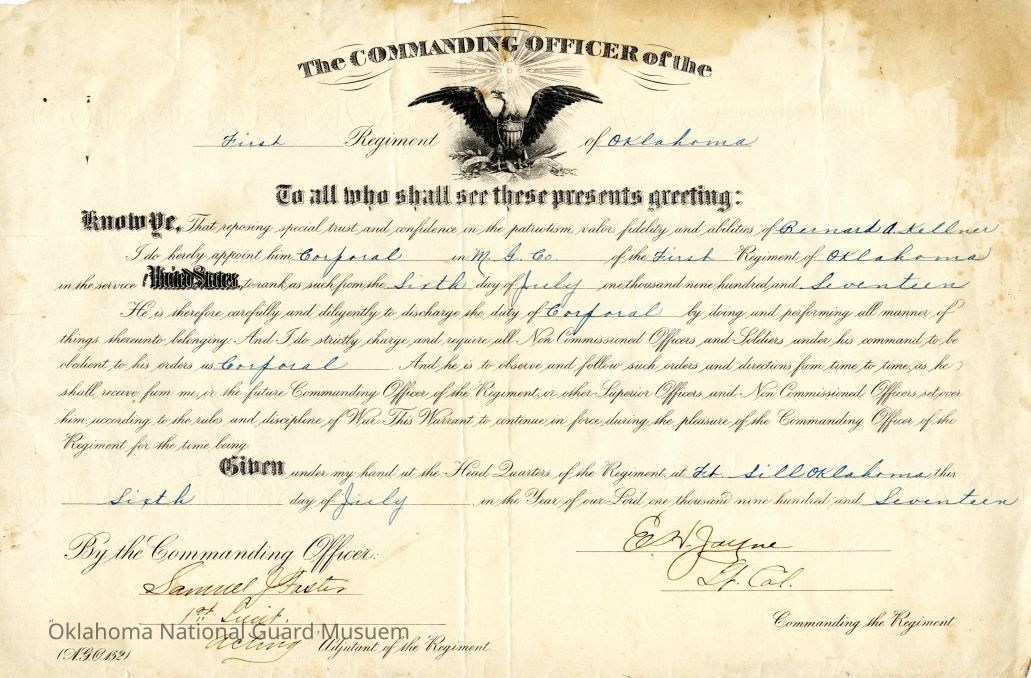 The COMMANDING OFFICER of the
First Regiment of Oklahoma
To all who shall see these presents greeting:
Know Ye, That reposing special trust and confidence in the patriotism, valor, fidelity and abilities of Bernard A. Kellner
I do hereby appoint him Corporal in M. G. Co. of the First Regiment of Oklahoma
in the service United States, to rank as such from the Sixth day of July one thousand nine hundred and Seventeen
He is therefore carefully and diligently to discharge the duty of Corporal by doing and performing all manner of
things thereunto belonging. And I do strictly charge and require all Non Commissioned Officers and Soldiers under his command to be
obedient to his orders as Corporal And he is to observe and follow such orders and directions from time to time, as he
shall receive from me, or the future Commanding Officer of the Regiment, or other Superior Officers and Non Commissioned Officers set over
him, according to the rules and discipline of War. This Warrant to continue in force during the pleasure of the Commanding Officer of the
Regiment for the time being.
Given under my hand at the Head Quarters of the Regiment, at Ft. Sill Oklahoma, this
Sixth day of July in the Year of our Lord one thousand nine hundred, and Seventeen
E. H. Jayne
Lt. Col.
Commanding the Regiment.
By the Commanding Officer:
Samuel J Foster
1st Lieut.
acting Adjutant of the Regiment.
Oklahoma National Guard Musuem
(A.G.O. 152)